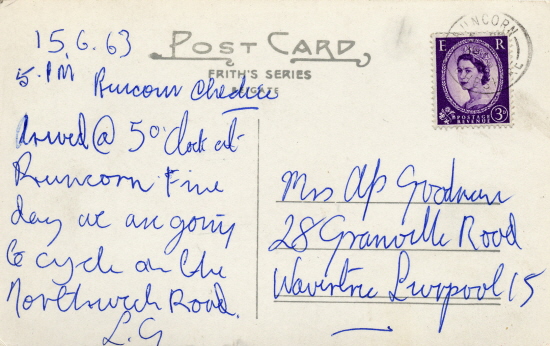 15.6.63
POST CARD
FRITH'S SERIES
REIGATE
5.PM Runcorn Cheshire
Arrived @ 5 o'clock at
Runcorn Fine
day we are going
to cycle on the
Northwich Road.
L.G
E R
POSTAGE
REVENUE
3D
RUNCORN
Mrs A P Goodman
28 Granville Road
Wavertree Liverpool 15